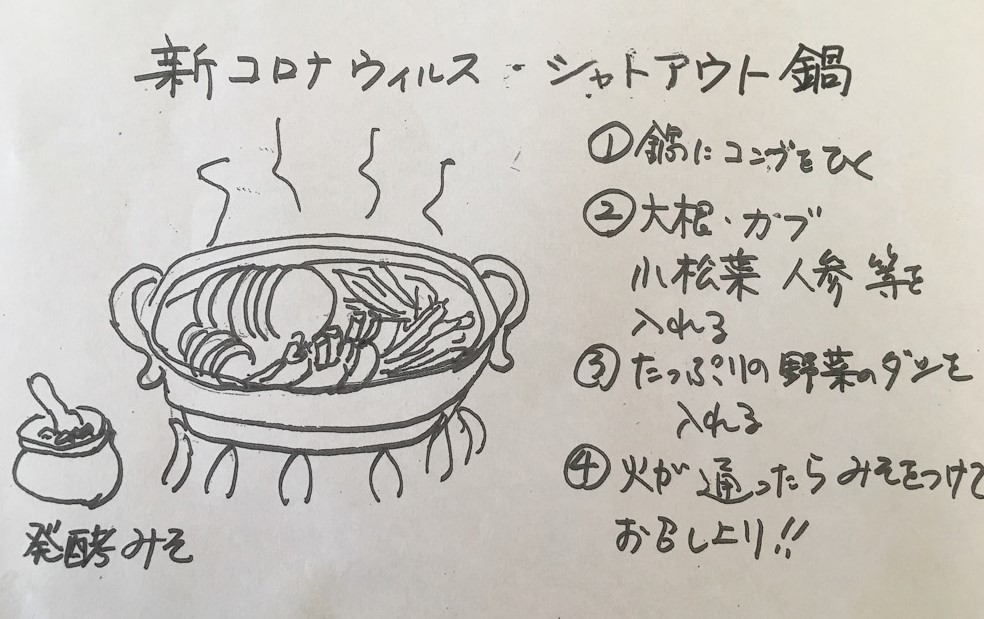 新コロナウィルス・シャトアウト鍋
①鍋にコンブをひく
②大根・カブ
小松菜 人参 等を
入れる
③たっぷりの野菜のダシを
入れる
④火が通ったらみそをつけて
お召し上り!!
発酵みそ